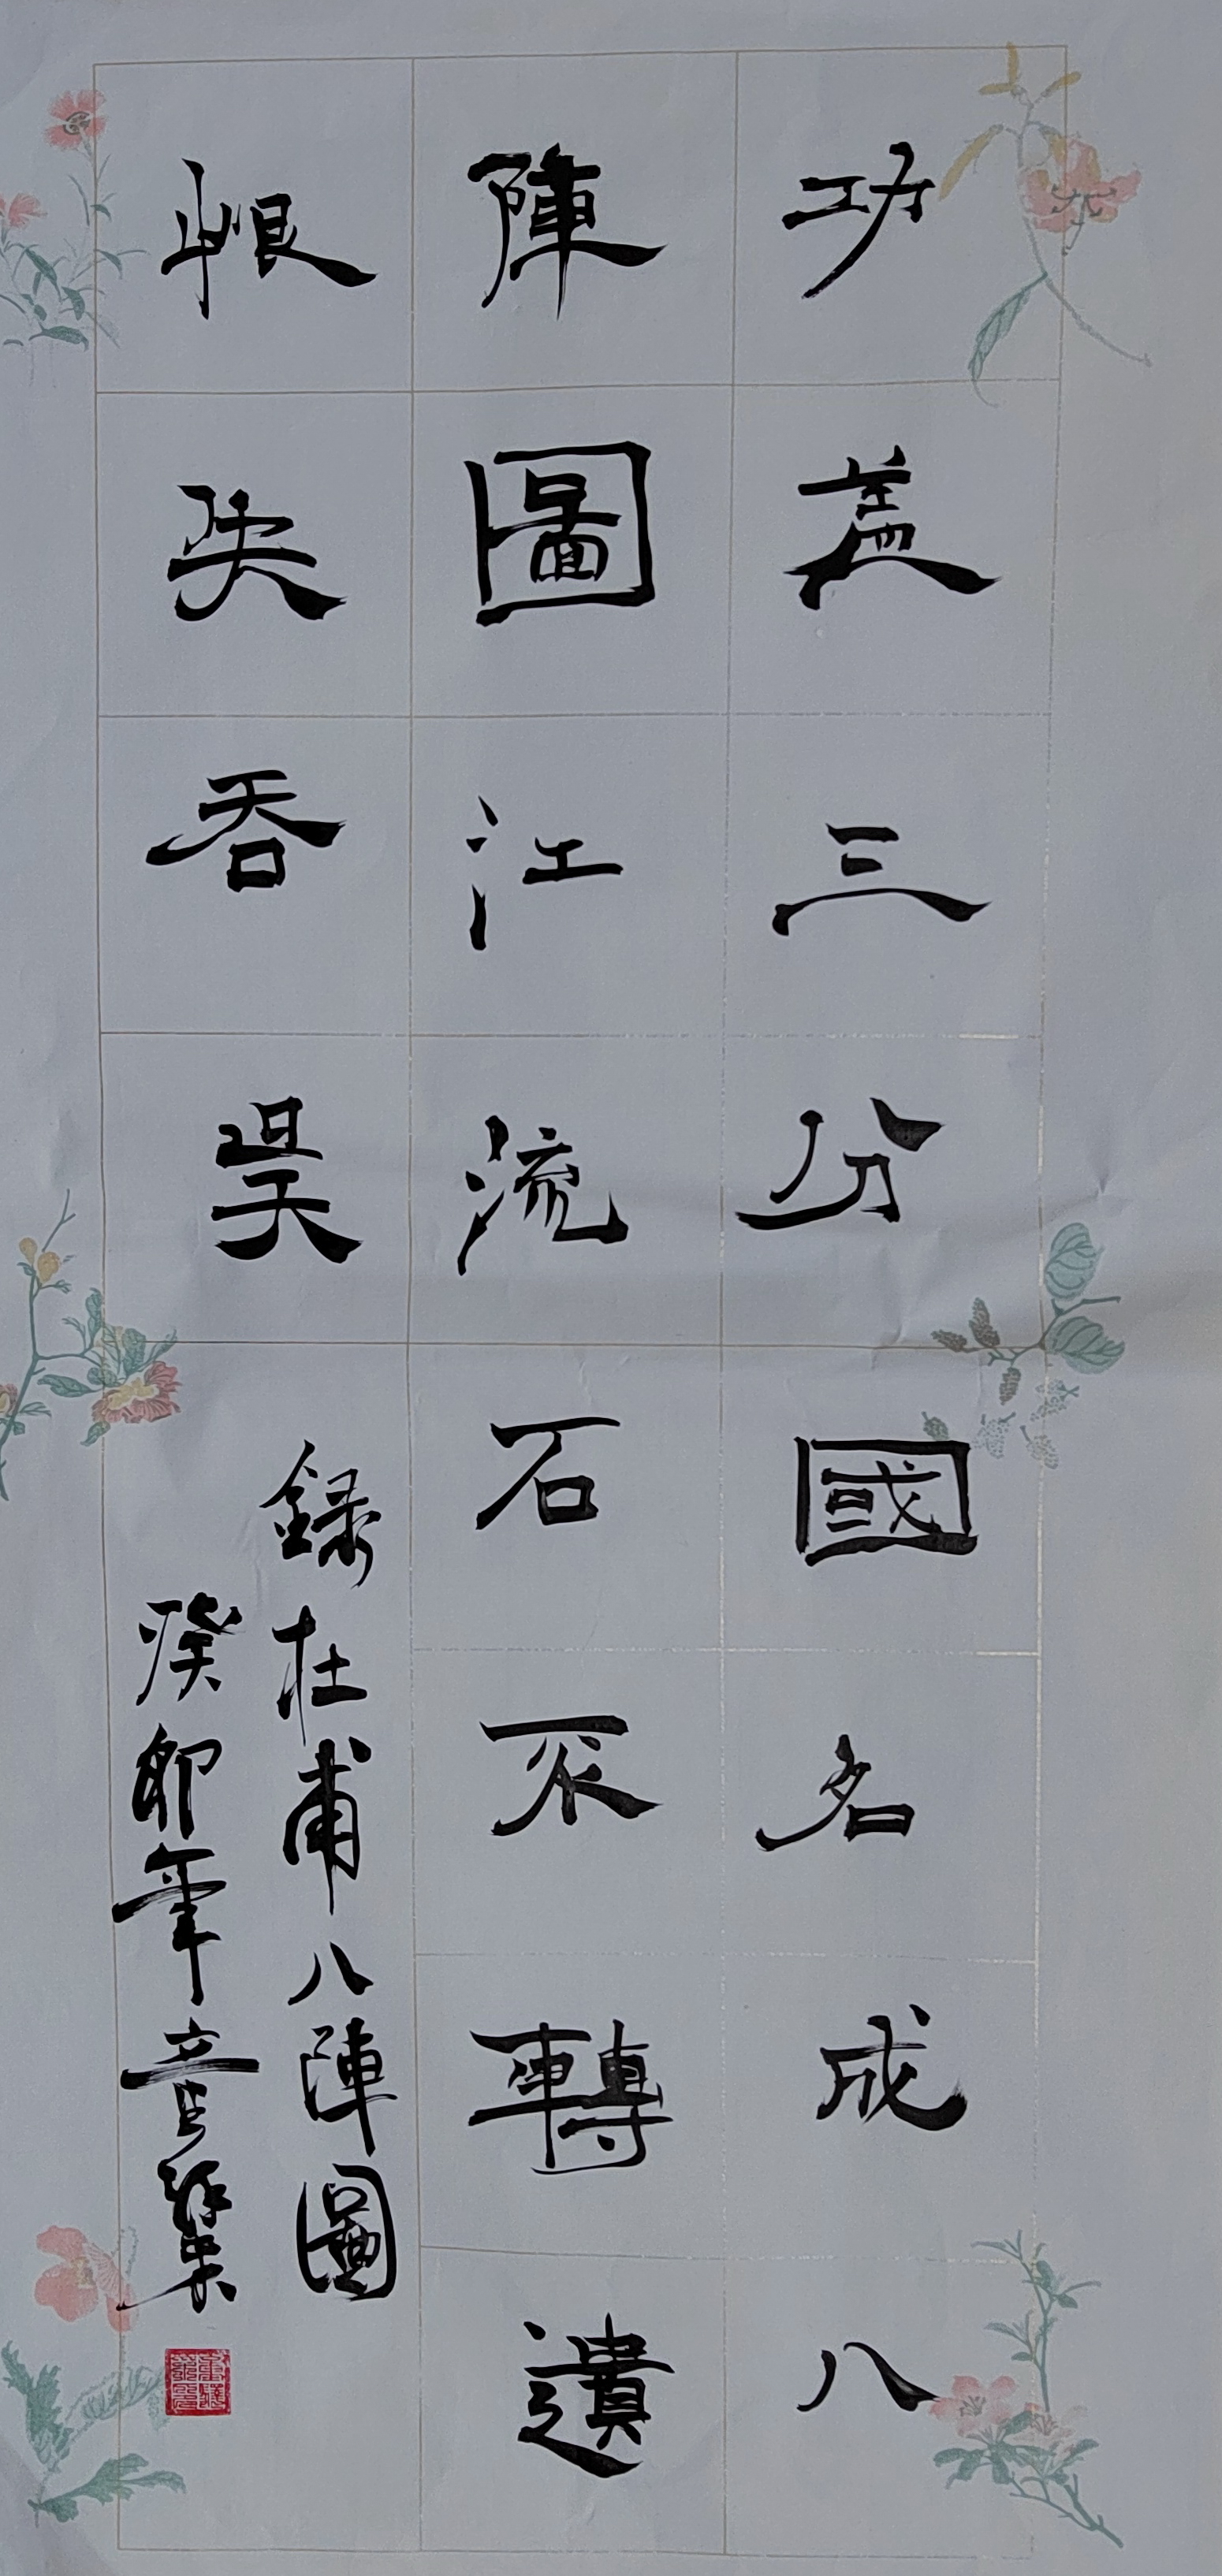 功蓋三分國名成八
陣圖江流石不轉遺
恨失吞吳
錄杜甫八陣圖
癸卯年